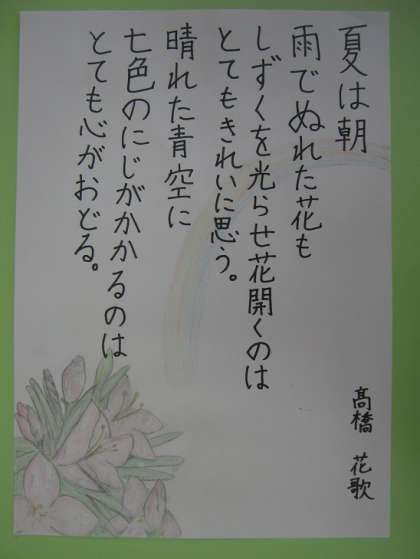 夏は朝
雨でぬれた花も
しずくを光らせ花開くのは
とてもきれいに思う。
晴れた青空に
七色のにじがかかるのは
とても心がおどる。
髙橋 花歌